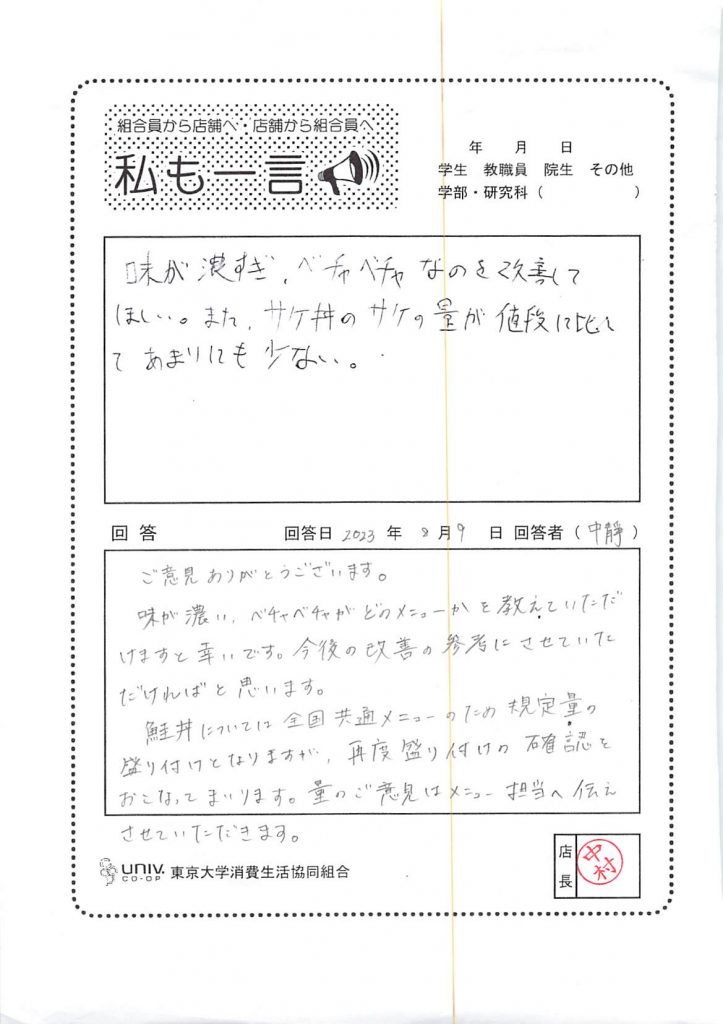 組合員から店舗へ・店舗から組合員へ
私も一言
年 月 日
学生 教職員 院生 その他
学部・研究科（ ）
味が濃すぎ、ベチャベチャなのを改善して
ほしい。また、サケ丼のサケの量が値段に比べ
てあまりにも少ない。
回答 回答日 2023 年 8 月 9 日 回答者（中静）
ご意見ありがとうございます。
味が濃い、ベチャベチャがどのメニューかを教えていただ
けますと幸いです。今後の改善の参考にさせていた
だければと思います。
鮭丼については全国共通メニューのため規定量の
盛り付けとなりますが、再度盛り付けの確認を
おこなってまいります。量のご意見はメニュー担当へ伝え
させていただきます。
UNIV. CO-OP 東京大学消費生活協同組合
店長 中村